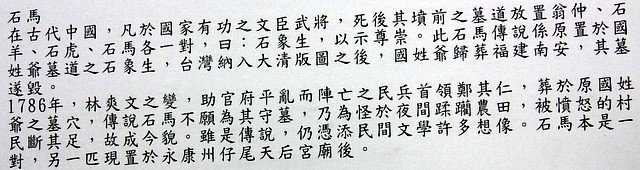 石馬
在古代中國，凡於國家有功之文臣武將，死後其墳前之墓道放置翁仲、石
羊、石虎、石馬各一對，曰：石象生，以示尊崇。此石馬傳說係原置於國
姓爺墓道之石象生，台灣納入大清版圖之後，國姓爺歸葬福建南安，其墓
遂毀。
1786年，林爽文之變，助官府平亂而陣亡之民兵首領鄭其仁，葬於原國姓
爺之墓穴，傳說石馬不願為其守墓，乃為怪於夜間蹂躪農田，被憤怒的村
民斷其足，故成今貌。雖是傳說，仍憑添民間文學許多想像。石馬本是一
對，另一匹現置於永康州仔尾天后宮廟後。